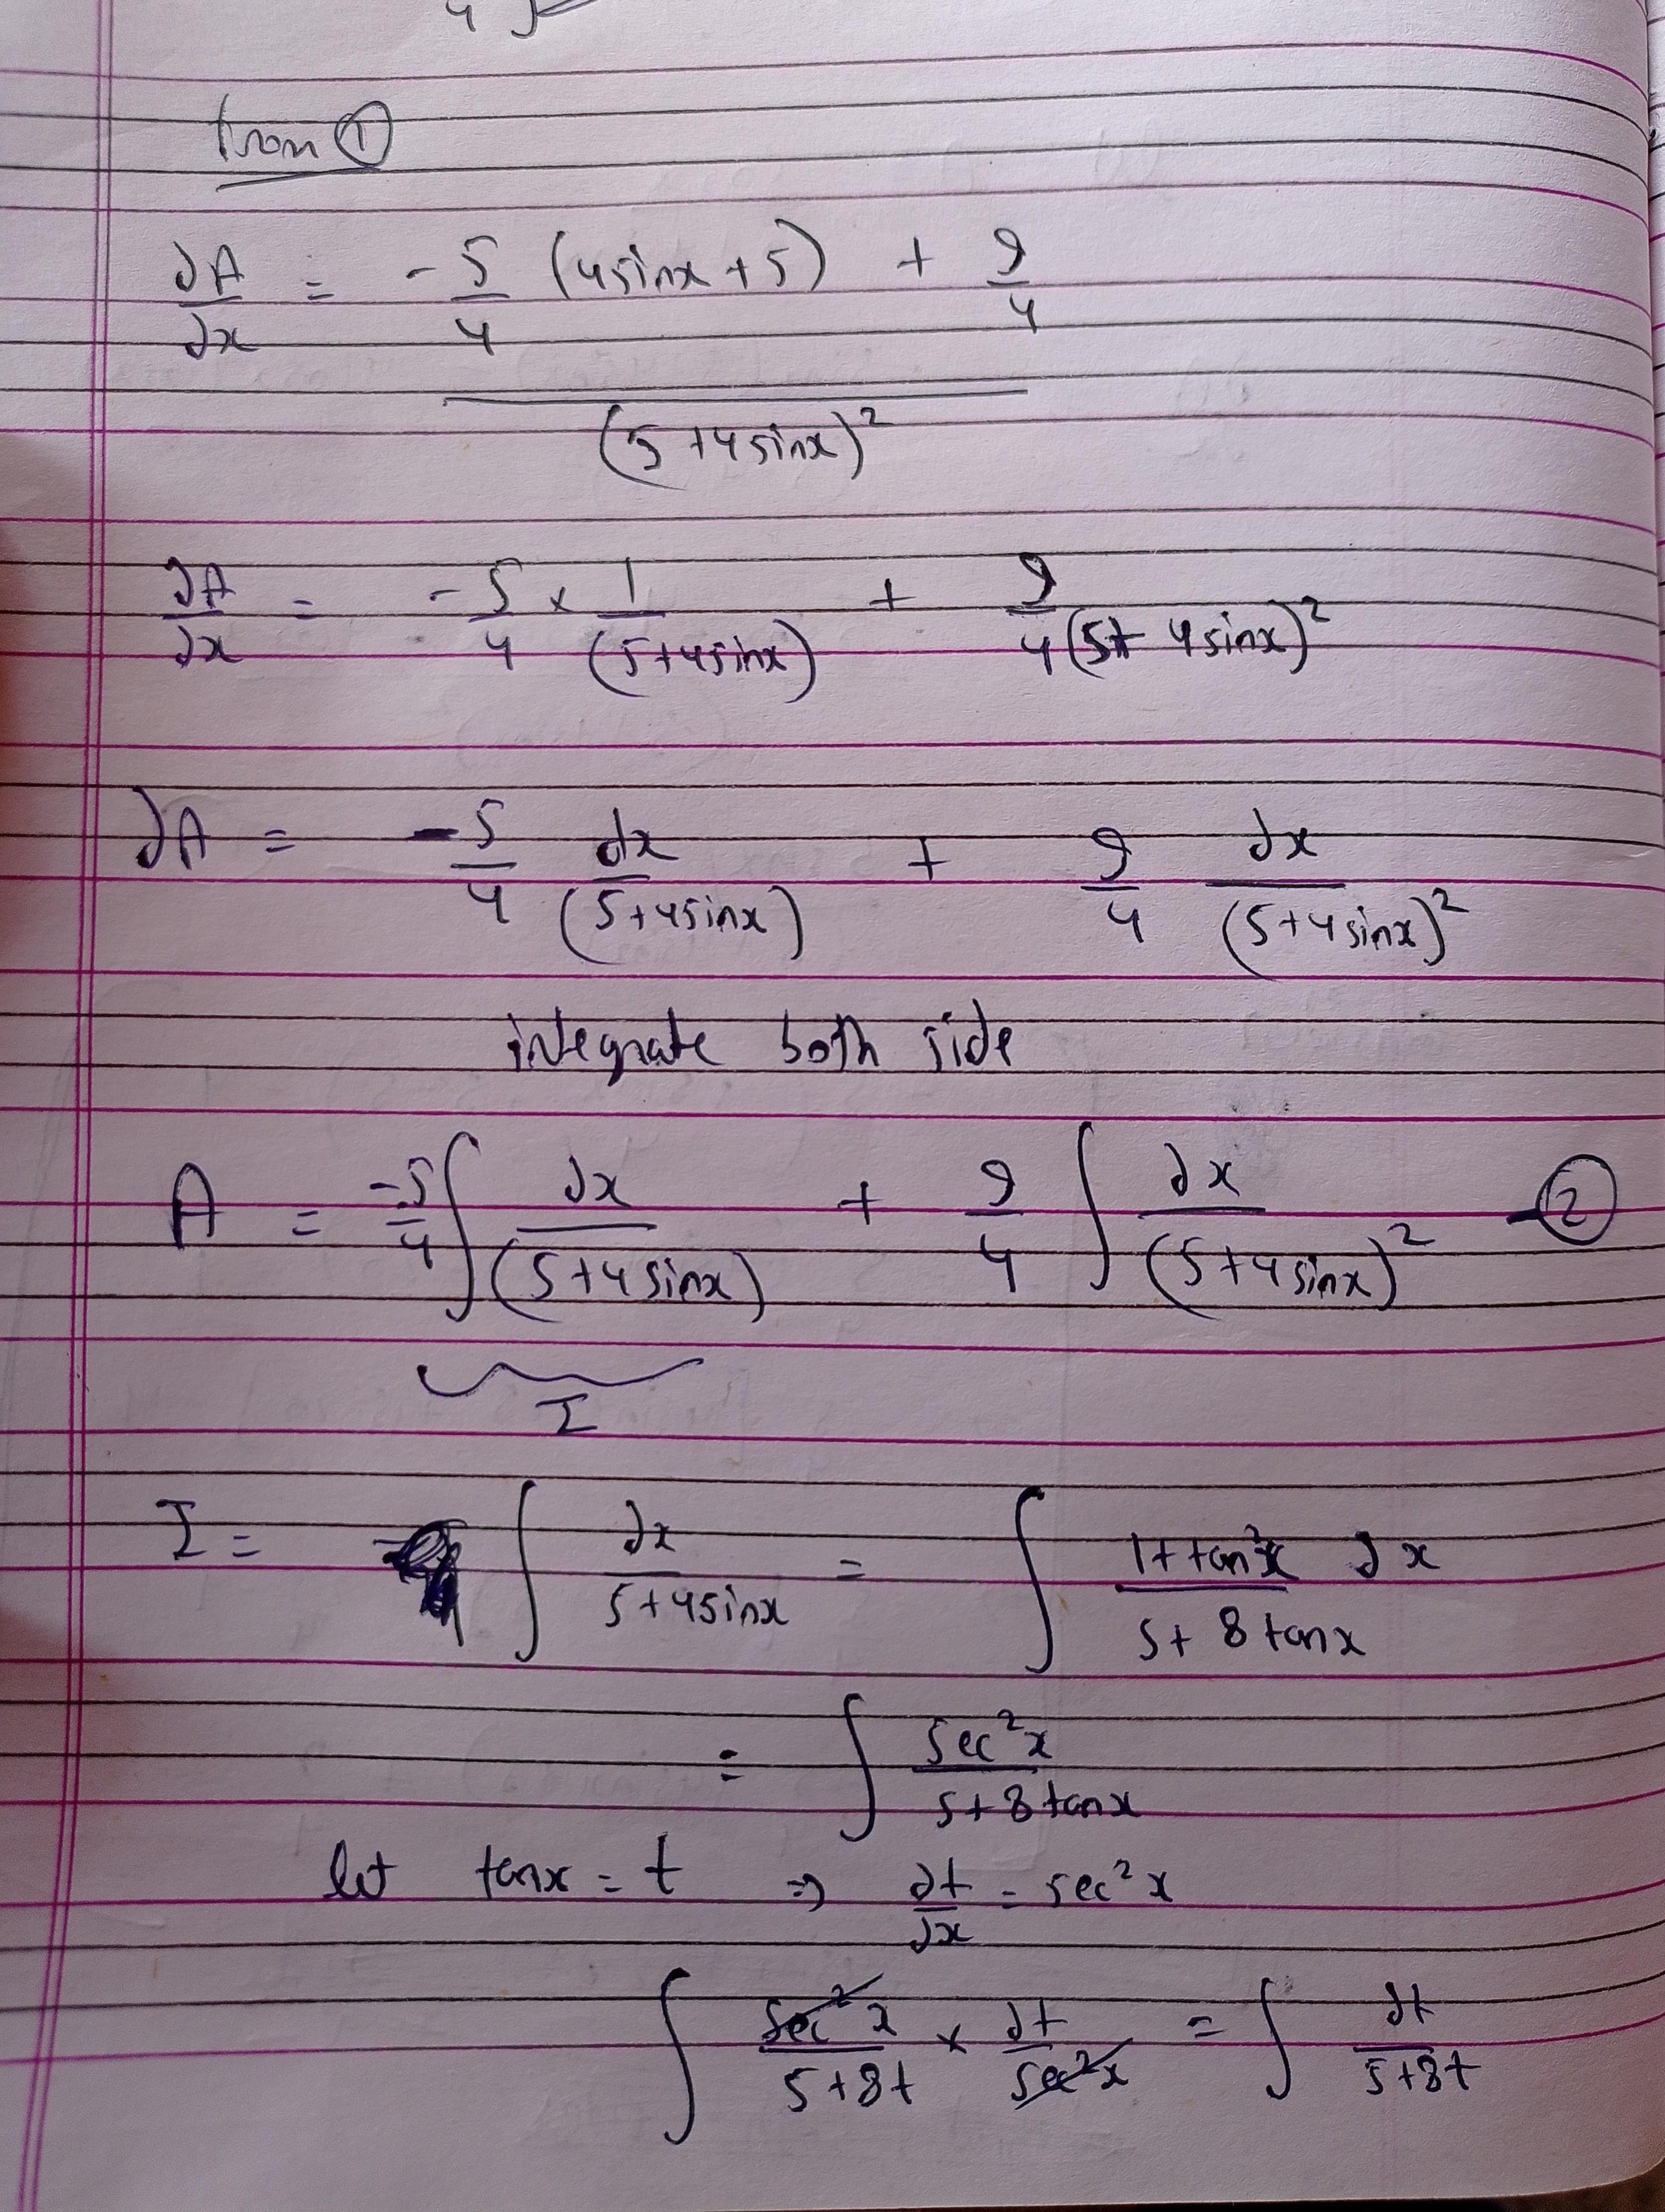 from ①
dA/dx = -5/4 (4sinx+5) + 9/4
(5+4sinx)²
dA/dx = -5/4 × 1/(5+4sinx) + 9/4(5+4sinx)²
dA = -5/4 dx/(5+4sinx) + 9/4 dx/(5+4sinx)²
integrate both side
A = -5/4 ∫ dx/(5+4sinx) + 9/4 ∫ dx/(5+4sinx)² - ②
I
I = ∫ dx/5+4sinx = ∫ 1+tan²x dx/5+8tanx
= ∫ sec²x/5+8tanx
let tanx = t ⇒ dt/dx = sec²x
∫ sec²x/5+8t × dt/sec²x = ∫ dt/5+8t